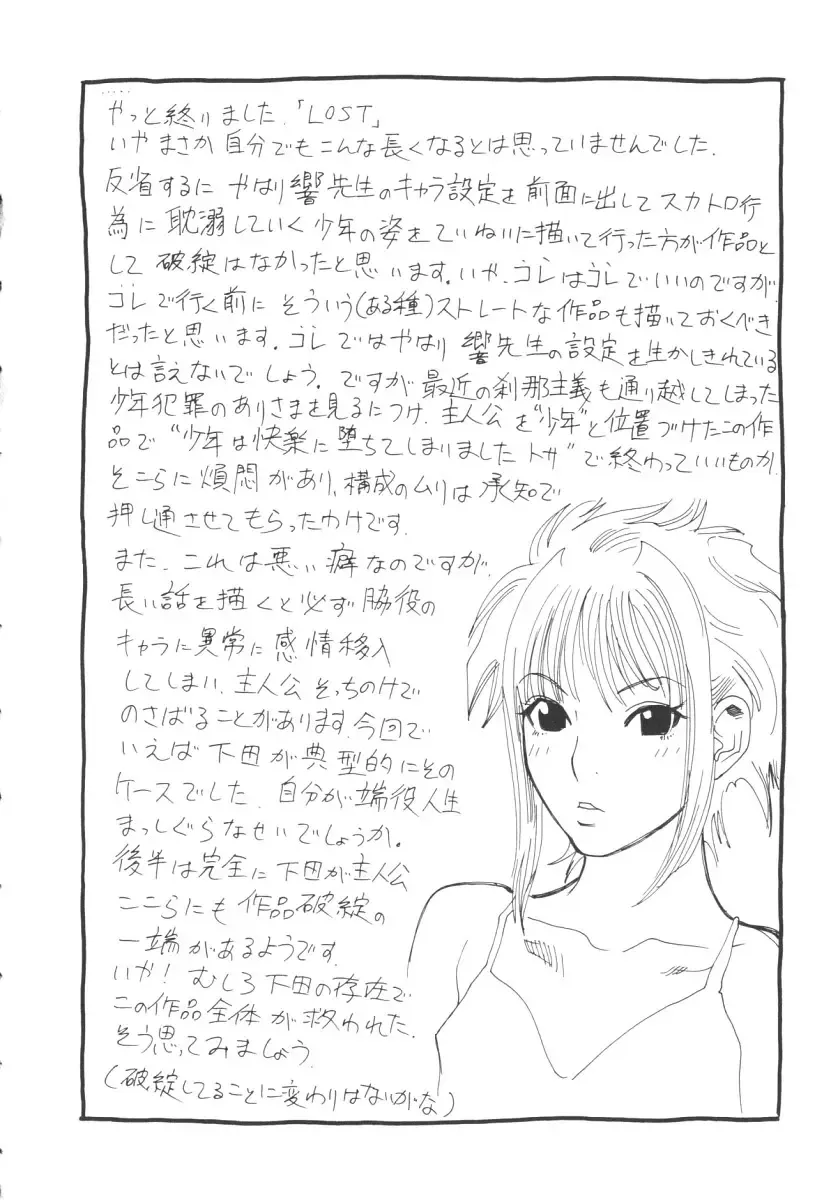 ‥‥
やっと終りました.「LOST」
いや まさか 自分でも こんな長くなるとは思っていませんでした.
反省するに やはり響先生のキャラ設定を前面に出してスカトロ行
為に耽溺していく少年の姿をていねいに描いて行った方が作品と
して 破綻はなかったと思います. いや. コレはコレでいいのですが
コレで行く前に そういう(ある種)ストレートな作品も描いておくべき
だったと思います. コレではやはり 響先生の設定を生かしきれている
とは言えないでしょう. ですが最近の刹那主義も通り越してしまった
少年犯罪のありさまを見るにつけ. 主人公を“少年”と位置づけたこの作
品で “少年は快楽に堕ちてしまいました トサ”で終わっていいものか.
そこらに煩悶があり. 構成のムリは承知で
押し通させてもらったわけです.
また. これは悪い癖なのですが.
長い話を描くと必ず脇役の
キャラに異常に感情移入
してしまい. 主人公そっちのけで
のさばることがあります. 今回で
いえば下田が典型的にその
ケースでした. 自分が端役人生
まっしぐらなせいでしょうか。
後半は完全に下田が主人公
ここらにも作品破綻の
一端があるようです.
いや! むしろ下田の存在で
この作品全体が救われた.
そう思ってみましょう.
(破綻してることに変わりはないがな)